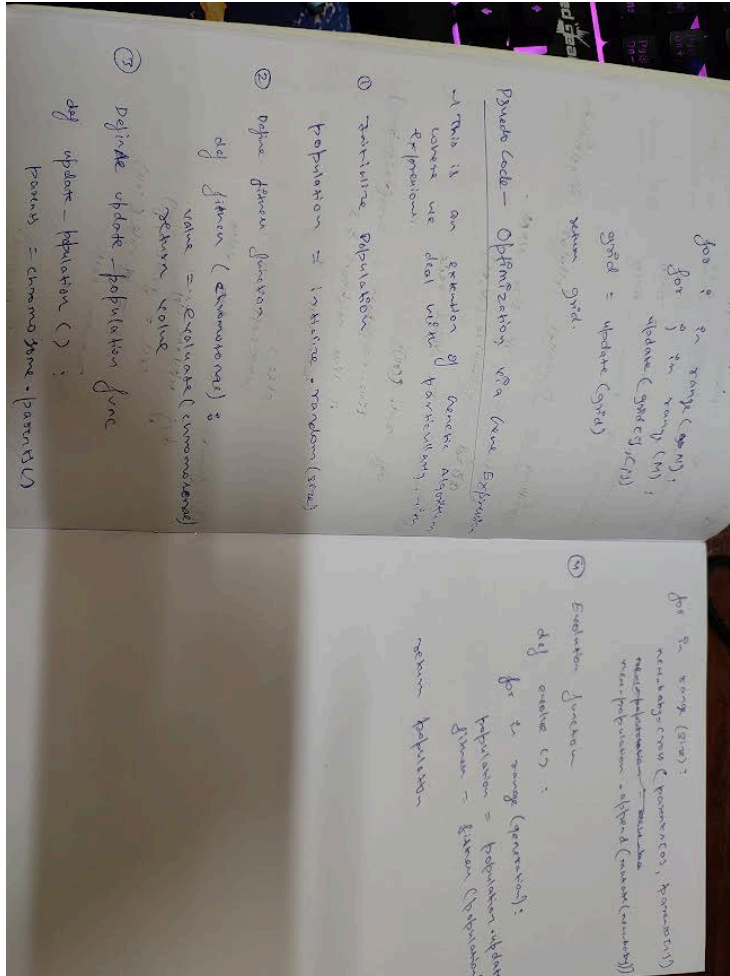 for i in range(N):
for j in range(M):
update(grid[i],[j])
grid = update(grid)
return grid
Psuedo Code - Optimization via Gene Expression
→ This is an extension of Genetic Algorithm
where we deal with particularly with
expressions.
① Initialize Population
population = initialize.random(size)
② Define fitness function
def fitness (chromosomes):
value = evaluate(chromosomes)
return value
③ Define update-population func
def update-population():
parents = chromosome.parents()
for in range(size):
new-baby.cross(parents[0], parents[1])
new-population.append(mutate(new-baby))
④ Evolution function
def evolve():
for in range(generation):
population = population.updat
fitness = fitness(population
return population
ed Gear